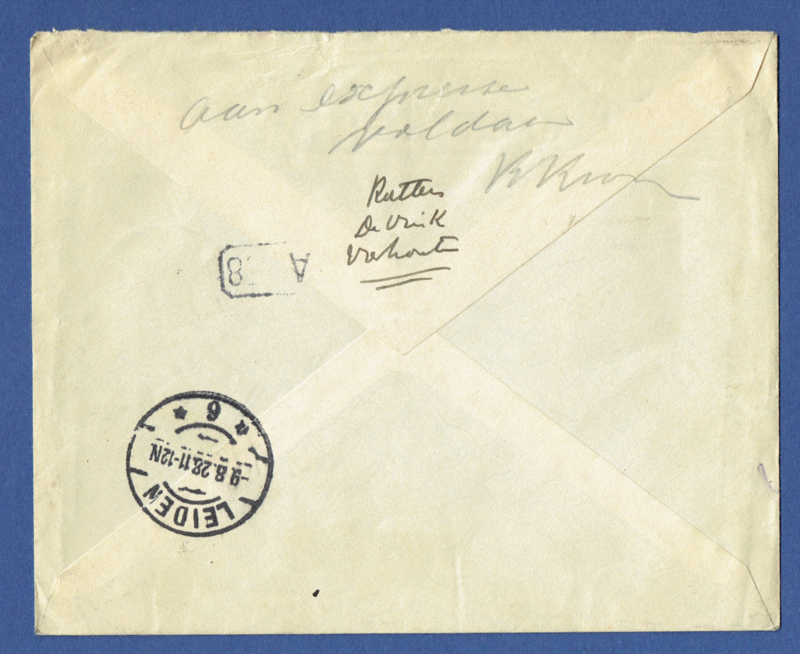 aan expresse
voldaan
Rutten
De Vink
Vierhouten
A 8
LEIDEN
-9.8.28.11-12N
* 6 *